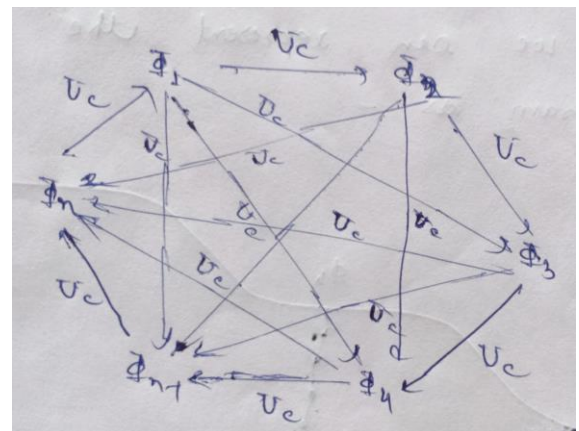 Φ₁ U_c Φ₂
U_c U_c
U_c U_c U_c
Φₙ U_c U_c U_c
Φ₃
U_c
U_c U_c U_c
Φₙ₋₁ U_c Φ₄